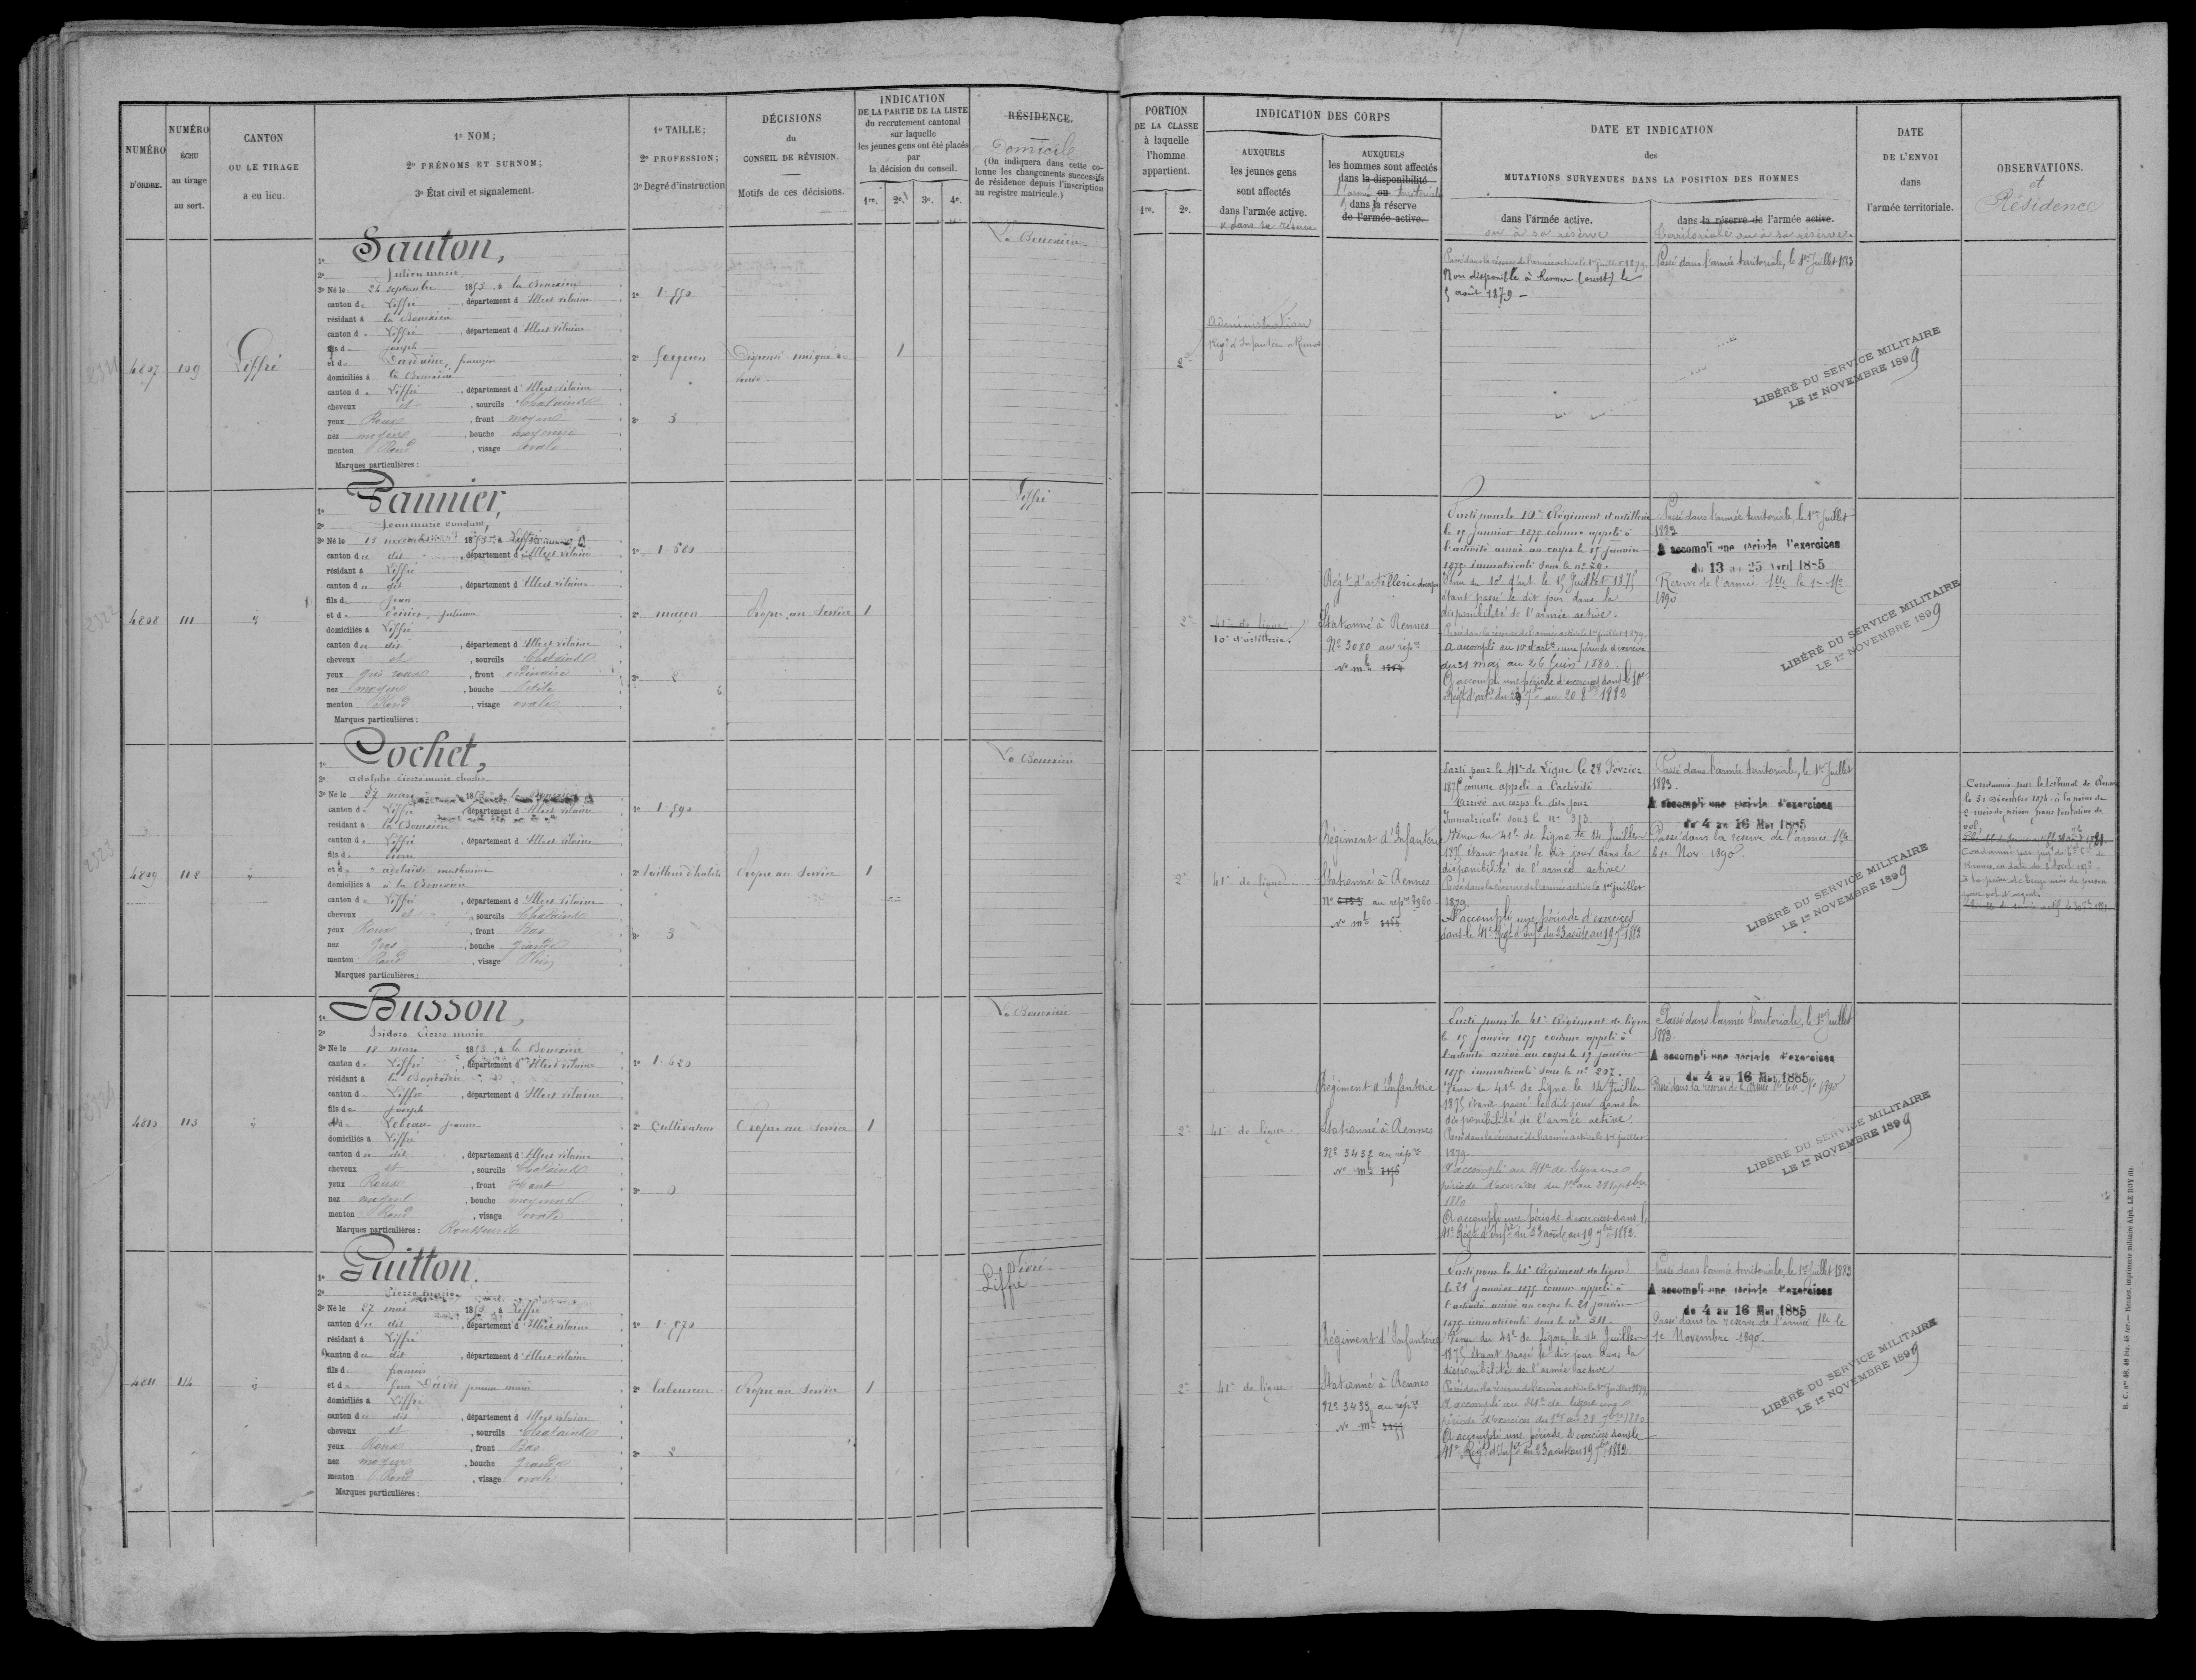 NUMÉRO
D'ORDRE.
NUMÉRO
ÉCHU
au tirage
au sort.
CANTON
OU LE TIRAGE
a eu lieu.
1º NOM;
2º PRÉNOMS ET SURNOM;
3º État civil et signalement.
1º TAILLE;
2º PROFESSION;
3º Degré d'instruction
DÉCISIONS
du
CONSEIL DE RÉVISION.
Motifs de ces décisions.
INDICATION
DE LA PARTIE DE LA LISTE
du recrutement cantonal
sur laquelle
les jeunes gens ont été placés
par
la décision du conseil.
1re. 2e. 3e. 4e.
RÉSIDENCE.
Domicile
(On indiquera dans cette co-
lonne les changements successifs
de résidence depuis l'inscription
au registre matricule.)
4807
109
Liffré
1º Sauton,
2º Julien marie
3º Né le 24 septembre 1853, à la Bouexière
canton de Liffré, département d'Illeet vilaine
résidant à la Bouexière
canton de Liffré, département d'Illeet vilaine
fils de Joseph
et de françoise
domiciliés à la Bouexière
canton de Liffré, département d'Illeet vilaine
cheveux et, sourcils Chatains
yeux Roux, front moyen
nez moyen, bouche moyenne
menton Rond, visage ovale
Marques particulières :
1º 1.550
2º forgeron
3º 3
1
La Bouexière
4808
111
1º Pannier,
2º Jean marie constant,
3º Né le 13 novembre 1853, à Liffré
canton du dit, département d'Illeet vilaine
résidant à Liffré
canton du dit, département d'Illeet vilaine
fils de Jean
et de julienne
domiciliés à Liffré
canton du dit, département d'Illeet vilaine
cheveux et, sourcils Chatains
yeux gris roux, front ordinaire
nez moyen, bouche Petite
menton Rond, visage ovale
Marques particulières :
1º 1.680
2º maçon
3º 2
Propre au Service
1
Liffré
4809
112
1º Cochet,
2º adolphe Pierre marie charles
3º Né le 27 mars 1853, à la Bouexière
canton de Liffré, département d'Illeet vilaine
résidant à la Bouexière
canton de Liffré, département d'Illeet vilaine
fils de Pierre
et de adelaïde mathurine
domiciliés à à la Bouexière
canton de Liffré, département d'Illeet vilaine
cheveux et, sourcils Chatains
yeux Roux, front Bas
nez Gros, bouche grande
menton Rond, visage Plein
Marques particulières :
1º 1.590
2º tailleur d'habits
3º 3
Propre au Service
1
La Bouexière
4810
113
1º Busson,
2º Isidore Pierre marie
3º Né le 18 mars 1853, à la Bouexière
canton de Liffré, département d'Illeet vilaine
résidant à la Bouexière
canton de Liffré, département d'Illeet vilaine
fils de Joseph
et de Lebeau jeanne
domiciliés à Liffré
canton du dit, département d'Illeet vilaine
cheveux et, sourcils Chatains
yeux Roux, front Haut
nez moyen, bouche moyenne
menton Rond, visage ovale
Marques particulières :
1º 1.620
2º Cultivateur
3º 0
Propre au Service
1
La Bouexière
4811
114
1º Guitton.
2º Pierre marie
3º Né le 27 mai 1853, à Liffré
canton du dit, département d'Illeet vilaine
résidant à Liffré
canton du dit, département d'Illeet vilaine
fils de françois
et de David jeanne marie
domiciliés à Liffré
canton du dit, département d'Illeet vilaine
cheveux et, sourcils Chatains
yeux Roux, front Bas
nez moyen, bouche grande
menton Rond, visage ovale
Marques particulières :
1º 1.570
2º laboureur
3º 2
Propre au Service
1
Liffré
PORTION
DE LA CLASSE
à laquelle
l'homme
appartient.
1re. 2e.
INDICATION DES CORPS
AUXQUELS
les jeunes gens
sont affectés
dans l'armée active.
& dans sa réserve
AUXQUELS
les hommes sont affectés
dans la disponibilité
l'armée ou territoriale
dans la réserve
de l'armée active.
DATE ET INDICATION
des
MUTATIONS SURVENUES DANS LA POSITION DES HOMMES
dans l'armée active.
ou à sa réserve
dans la réserve de l'armée active.
territoriale ou à sa réserve.
DATE
DE L'ENVOI
dans
l'armée territoriale.
OBSERVATIONS.
et
Résidence
2e
Administration
Passé dans la réserve de l'armée active le 1er juillet 1879.
Non disponible à (ouest) le
5 août 1879 -
Passé dans l'armée territoriale, le 1er Juillet 1883
LIBÉRÉ DU SERVICE MILITAIRE
LE 1er NOVEMBRE 1899
2e
41e de ligne
10e d'artillerie.
Régt d'artillerie
Stationné à Rennes
Nº 3080 au répre
Parti pour le 10e Régiment d'artillerie
le 15 janvier 1875 comme appelé à
l'activité arrivé au corps le 15 janvier
1875 immatriculé sous le nº 29.
Venu du 10e d'art. le 15 Juillet 1875
étant passé le dit jour dans la
disponibilité de l'armée active.
Passé dans la réserve de l'armée active le 1er juillet 1879.
a accompli au 10e d'artie une période d'exercice
du 21 mai au 26 Juin 1880.
A accompli une période d'exercices dans le 10e
Passé dans l'armée territoriale, le 1er Juillet
1883
A accompli une période d'exercices
du 13 au 25 Avril 1885
Réserve de l'armée tlle le 1er Nbre
1890
LIBÉRÉ DU SERVICE MILITAIRE
LE 1er NOVEMBRE 1899
2e
41e de ligne
Régiment d'Infanterie
Stationné à Rennes
Parti pour le 41e de Ligne le 28 Février
1875 comme appelé à l'activité
Arrivé au corps le dit jour
Immatriculé sous le nº 313
Venu du 41e de Ligne le 14 Juillet
1875 étant passé le dit jour dans la
disponibilité de l'armée active
Passé dans la réserve de l'armée active le 1er juillet
1879.
A accompli une période d'exercices
dans le 41e Régt d'Infie du 23 août au 19 7bre 1882
Passé dans l'armée territoriale, le 1er Juillet
1883.
A accompli une période d'exercices
du 4 au 16 Mai 1885
Passé dans la réserve de l'armée tlle
le 1er Nov. 1890.
LIBÉRÉ DU SERVICE MILITAIRE
LE 1er NOVEMBRE 1899
Condamné par le tribunal de Rennes
le 31 Décembre 1874 à la peine de
2 mois de prison pour tentative de
vol.
2e
41e de ligne
Régiment d'Infanterie
Stationné à Rennes
Nº 3432 au répre
Parti pour le 41e Régiment de ligne
le 15 janvier 1875 comme appelé à
l'activité arrivé au corps le 15 janvier
1875 immatriculé sous le nº 207.
Venu du 41e de Ligne le 14 Juillet
1875 étant passé le dit jour dans la
disponibilité de l'armée active.
Passé dans la réserve de l'armée active le 1er juillet
1879.
A accompli au 41e de ligne une
période d'exercices du 1er au 28 septbre
1880
A accompli une période d'exercices dans le
41e Régt d'Infie du 23 août au 19 7bre 1882.
Passé dans l'armée territoriale, le 1er Juillet
1883
A accompli une période d'exercices
du 4 au 16 Mai 1885
Passé dans la réserve de l'armée tlle le 1er Nbre 1890
LIBÉRÉ DU SERVICE MILITAIRE
LE 1er NOVEMBRE 1899
2e
41e de ligne
Régiment d'Infanterie
Stationné à Rennes
Nº 3433 au répre
Parti pour le 41e Régiment de ligne
le 21 janvier 1875 comme appelé à
l'activité arrivé au corps le 21 janvier
1875 immatriculé sous le nº 311.
Venu du 41e de Ligne le 14 Juillet
1875 étant passé le dit jour dans la
disponibilité de l'armée active
Passé dans la réserve de l'armée active le 1er juillet 1879
A accompli au 41e de ligne une
période d'exercices du 1er au 28 7bre 1880
A accompli une période d'exercices dans le
41e Régt d'Infie du 23 août au 19 7bre 1882.
Passé dans l'armée territoriale, le 1er Juillet 1883
A accompli une période d'exercices
du 4 au 16 Mai 1885
Passé dans la réserve de l'armée tlle le
1er Novembre 1890.
LIBÉRÉ DU SERVICE MILITAIRE
LE 1er NOVEMBRE 1899